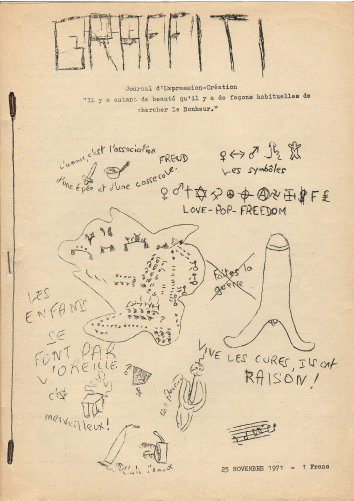 GRAFFITI
Journal d'Expression-Création
"Il y a autant de beauté qu'il y a de façons habituelles de
chercher le Bonheur."
L'amour, c'est l'association
d'une épée et d'une casserole.
FREUD
Les symboles
LOVE-POP-FREEDOM
Faites la
guerre
LES
ENFANS
SE
FONT PAR
L'OREILLE
c'est
merveilleux!
VIVE LES CURES, ILS ONT
RAISON!
25 NOVEMBRE 1971 - 1 Franc